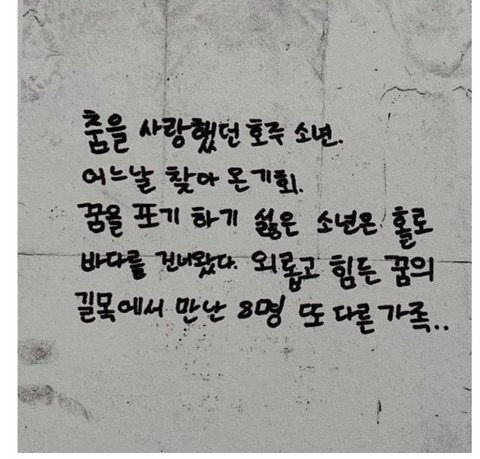 춤을 사랑했던 호주 소년.
어느날 찾아 온 기회.
꿈을 포기 하기 싫은 소년은 홀로
바다를 건너왔다. 외롭고 힘든 꿈의
길목에서 만난 8명 또 다른 가족..